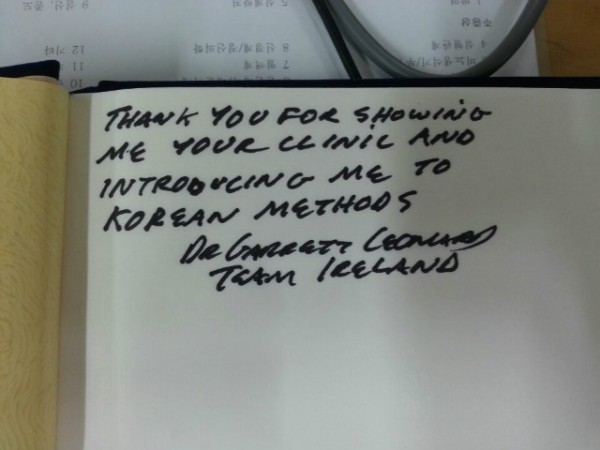 주증상
12 기타
11
10
THANK YOU FOR SHOWING
ME YOUR CLINIC AND
INTRODUCING ME TO
KOREAN METHODS
DR GARRETT LEONARD
TEAM IRELAND